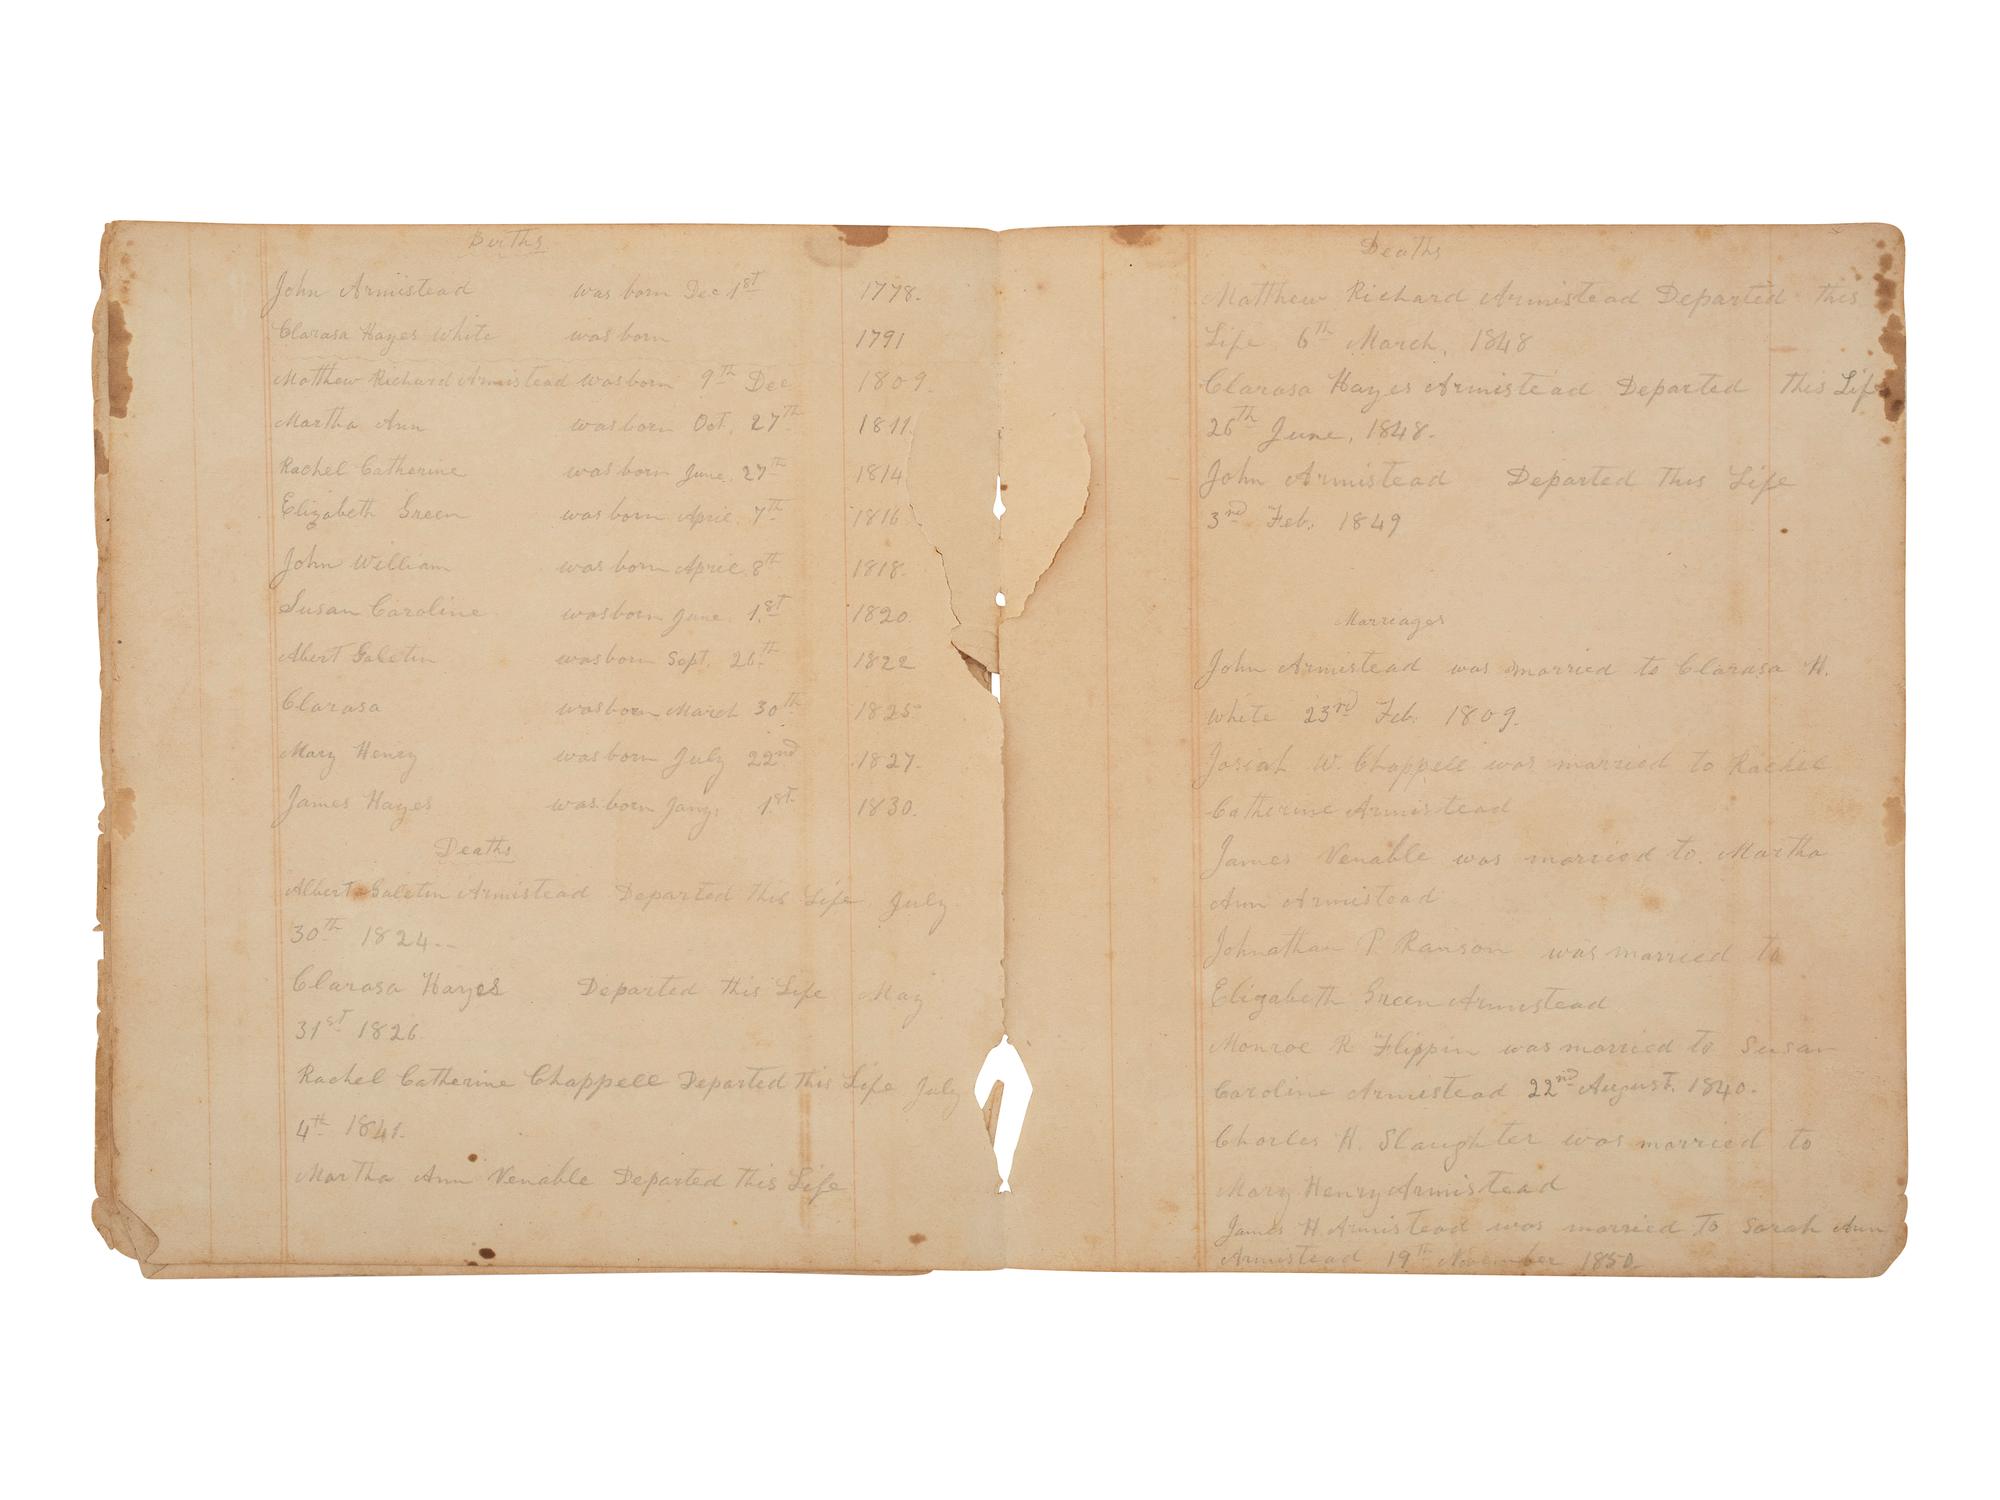 Births
John Armistead was born Dec 1st 1778.
Clarasa Hayes White was born 1791
Matthew Richard Armistead was born 9th Dec 1809.
Martha Ann was born Oct. 27th 1811.
Rachel Catherine was born June. 27th 1814
Elizabeth Green was born April 7th 1816
John William was born April 8th 1818.
Susan Caroline was born June 1.st 1820.
Abert Galetin was born Sept. 26th 1822
Clarasa was born March 30th 1825
Mary Henry was born July 22nd 1827.
James Hayes was born Jany. 1st 1830.
Deaths
Albert Galetin Armistead Departed this Life July
30th 1824--
Clarasa Hayes Departed this Life May
31st 1826.
Rachel Catherine Chappell Departed this Life July
4th 1841.
Martha Ann Venable Departed this Life
Deaths
Matthew Richard Armistead Departed this
Life 6th March, 1848
Clarasa Hayes Armistead Departed this Life
26th June, 1848.
John Armistead Departed this Life
3rd Feb. 1849
Marriages
John Armistead was married to Clarasa H.
White 23rd Feb. 1809.
Josiah W. Chappell was married to Rachel
Catherine Armistead
James Venable was married to. Martha
Ann Armistead
Johnathan P. Ranson was married to
Elizabeth Green Armistead
Monroe R Flippin was married to Susan
Caroline Armistead 22nd August. 1840.
Charles H. Slaughter was married to
Mary Henry Armistead
James H Armistead was married to Sarah Ann
Armistead 19th November 1850